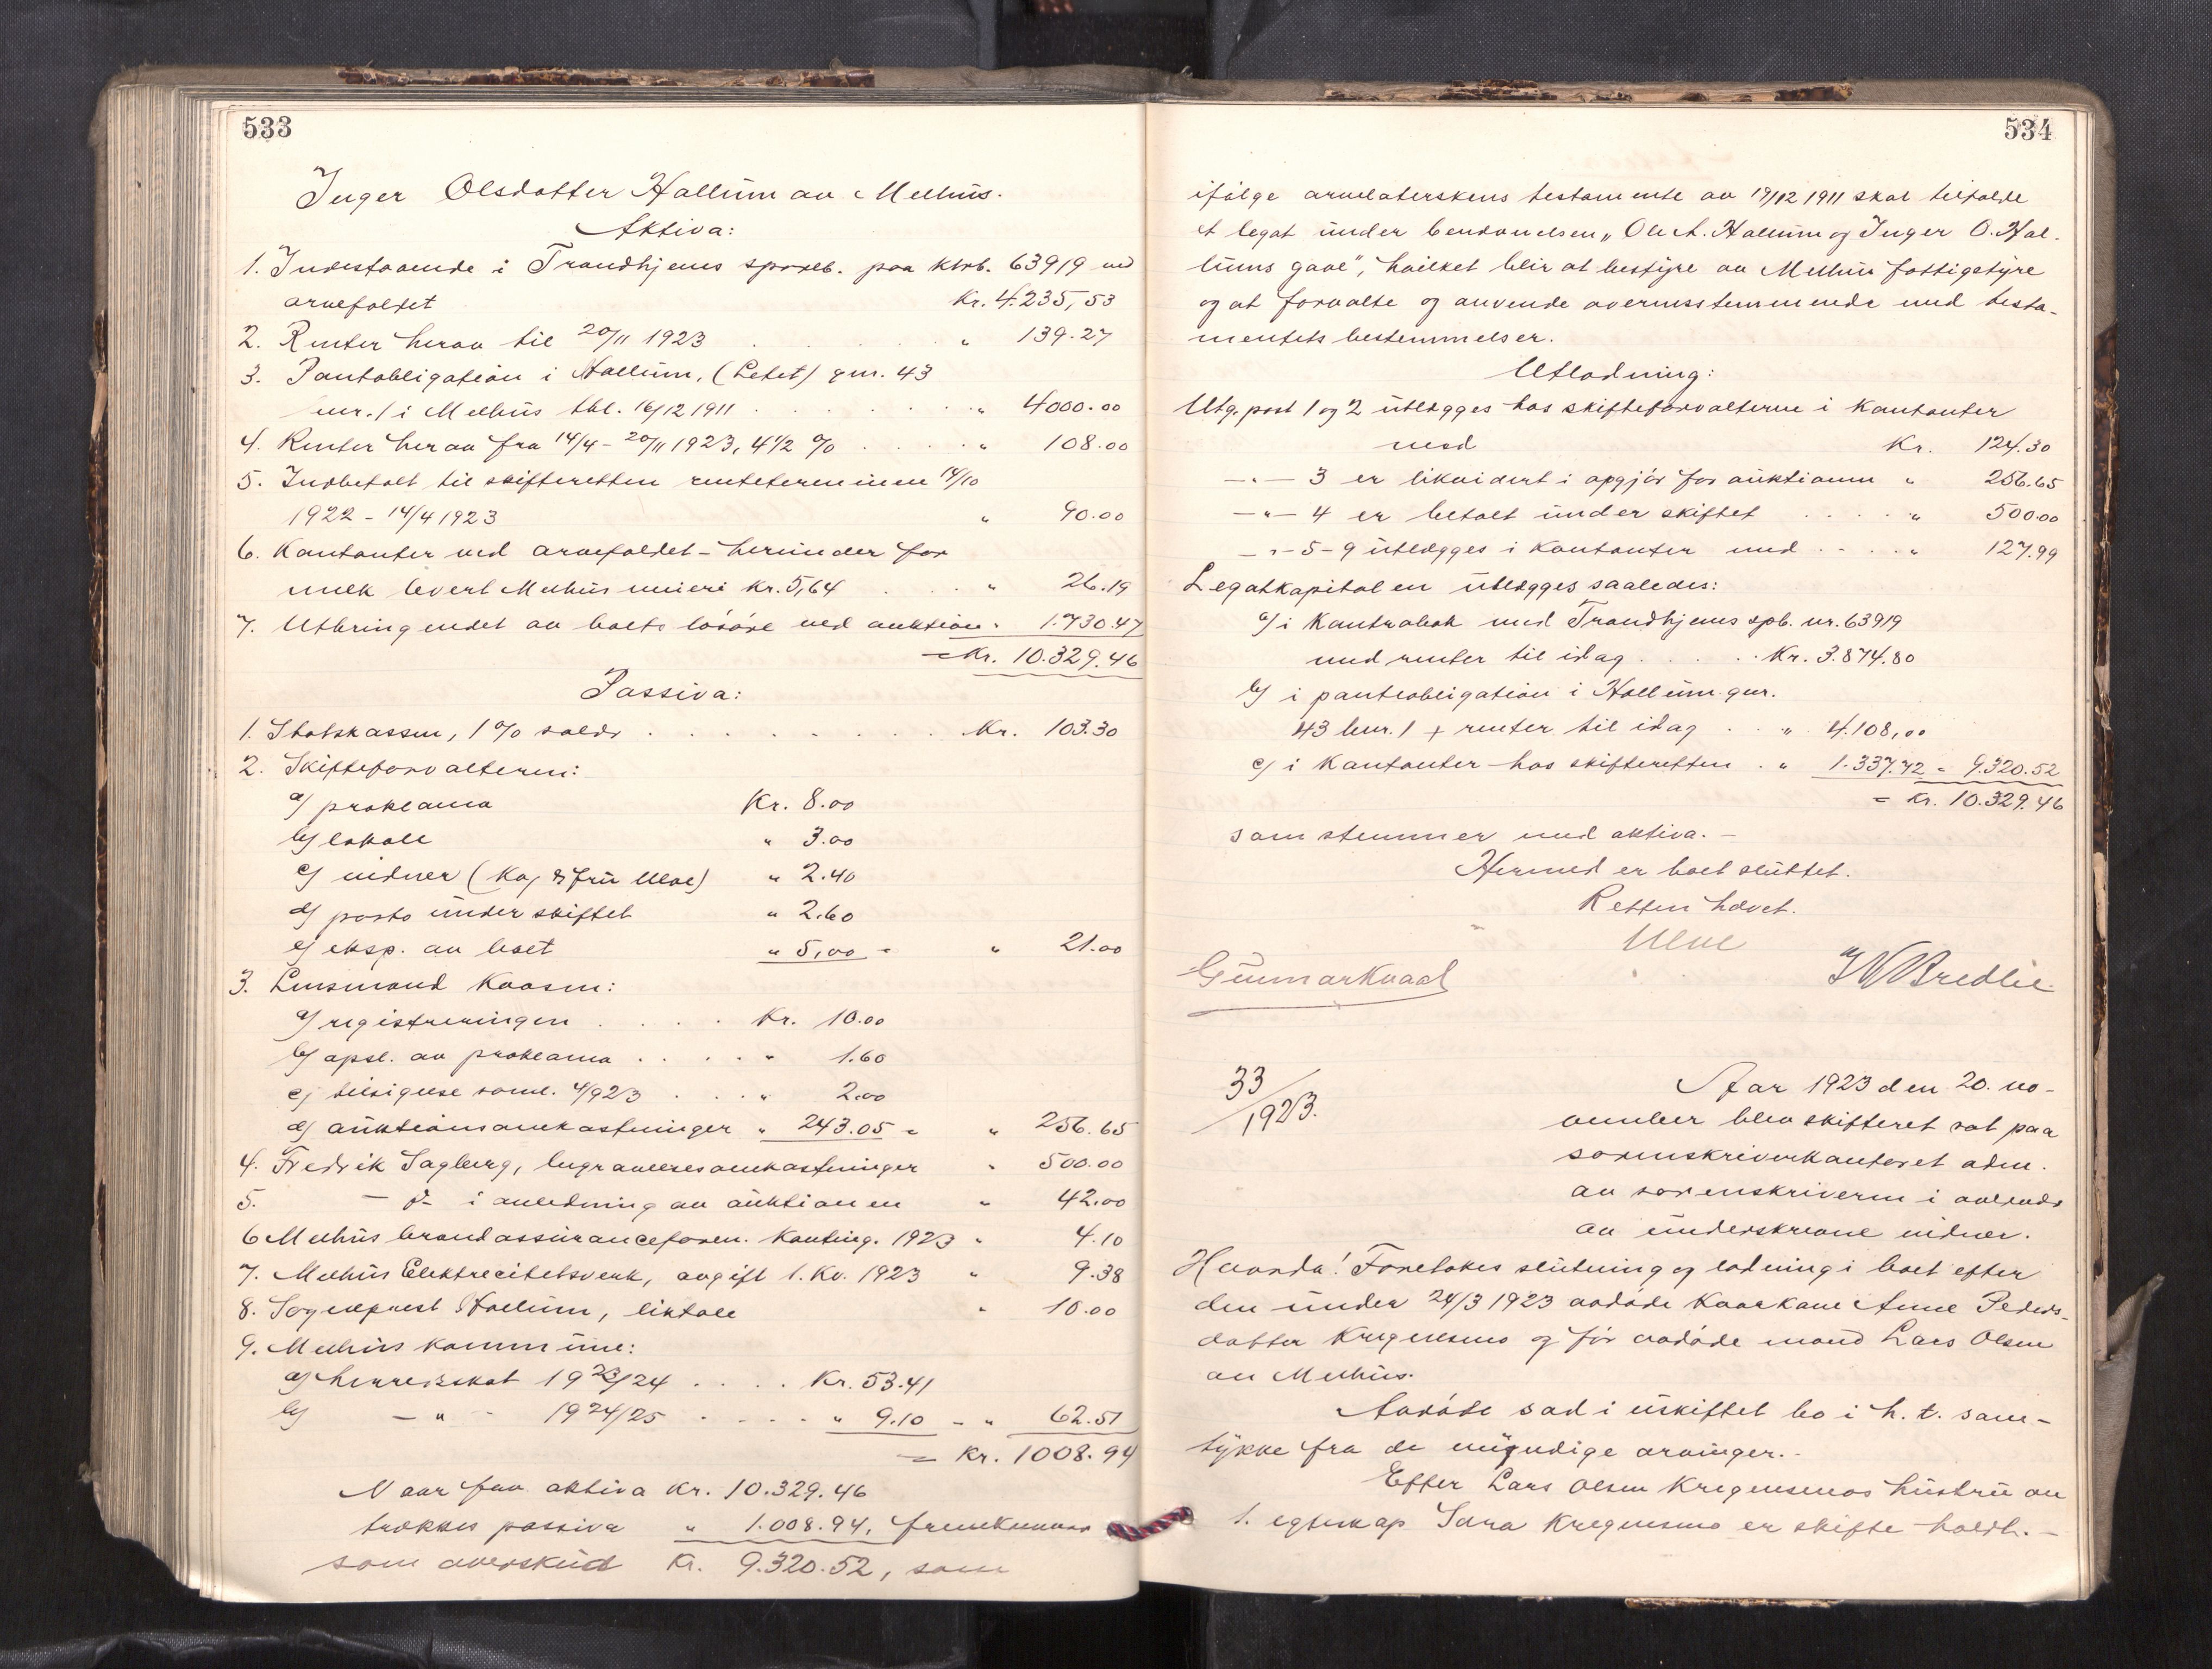 533
Inger Olsdatter Hallum av Melhus.
Aktiva:
1. Indestaaende i Trondhjems spareb. paa ktrb. 63919 ved
arvefaldet Kr. 4.235,53
2. Renter herav til 20/11 1923 . . . " 139.27
3. Pantobligation i Hallum, (Letet) gnr. 43
bnr. 1 i Melhus tbl. 16/12 1911 . . . " 4000.00
4. Renter herav fra 14/4 - 20/11 1923, 4 1/2 % . . . " 108.00
5. Indbetalt til skifteretten renteterminen 14/10
1922 - 14/4 1923 " 90.00
6. Kontanter ved arvefaldet - herunder for
melk levert Melhus meieri kr. 5,64 . . . " 26.19
7. Utbringendet av boets løsøre ved auktion " 1.730.47
= Kr. 10.329.46
Passiva:
1. Statskassen, 1 % saldo . . . Kr. 103.30
2. Skifteforvalteren:
a) proklama Kr. 8.00
b) lokale " 3.00
c) vidner (Ko, & fru Ulve) " 2.40
d) porto under skiftet " 2.60
e) eksp. av boet " 5,00 = " 21.00
3. Lensmand Kaasen:
a) registreringen . . . Kr. 10.00
b) opsl. av proklama . . . " 1.60
c) tilsigelse saml. 4/9 23 . . . " 2.00
d) auktionsomkostninger " 243.05 = " 256.65
4. Fredrik Sagberg, begravelsesomkostninger " 500.00
5. - d- i anledning av auktionen " 42.00
6 Melhus brandassuranceforen. Konting. 1923 " 4.10
7. Melhus Elektrecitetsverk, avgift 1. Kv. 1923 " 9.38
8. Sogneprest Hallum, liktale " 10.00
9. Melhus kommune:
a) herredsskat 19 23/24 . . . . Kr. 53.41
b) - " - 19 24/25 . . . . " 9.10 = " 62.51
= Kr. 1008.94
Naar fra aktiva Kr. 10.329.46
trækkes passiva " 1.008.94, fremkommer
som overskud Kr. 9.320.52, som
534
ifølge arvelaterskens testamente av 19/12 1911 skal tilfalde
et legat under benævnelsen „Ole A. Hallum og Inger O. Hal-
lums gave", hvilket blir at bestyre av Melhus fattigstyre
og at forvalte og anvende overensstemmende med testa-
mentets bestemmelser.
Utlodning:
Utg. post 1 og 2 utlægges hos skifteforvalteren i kontanter
med Kr. 124.30
— " — 3 er likvidert i opgjør for auktionen " 256.65
— " — 4 er betalt under skiftet . . . " 500.00
— " — 5-9 utlægges i kontanter med . . . " 127.99
Legatkapitalen utlægges saaledes:
a) i Kontrabok med Trondhjems spb. nr. 63919
med renter til idag . . . . Kr. 3.874.80
b) i panteobligation i Hallum gnr.
43 bnr. 1 + renter til idag . . " 4.108,00
c) i Kontanter hos skifteretten . " 1.337.72 = 9.320.52
= Kr. 10.329.46
som stemmer med aktiva. -
Hermed er boet sluttet.
Retten hævet.
Ulve
Gunnar Kvaal
Bredlie
33/1923.
Aar 1923 den 20. no-
vember blev skifteret sat paa
sorenskriverkontoret adm.
av sorenskriveren i overvær
av underskrevne vidner.
Hvorda! Foretokes slutning og lodning i boet efter
den under 24/3 1923 avdøde kaarkone Anne Peders-
datter Krigensmo og før avdøde mand Lars Olsen
av Melhus.
Avdøde sad i uskiftet bo i h. t. sam-
tykke fra de myndige arvinger. -
Efter Lars Olsen Krigensmos hustru av
1. egteskap Sara Krigensmo er skifte holdt. -